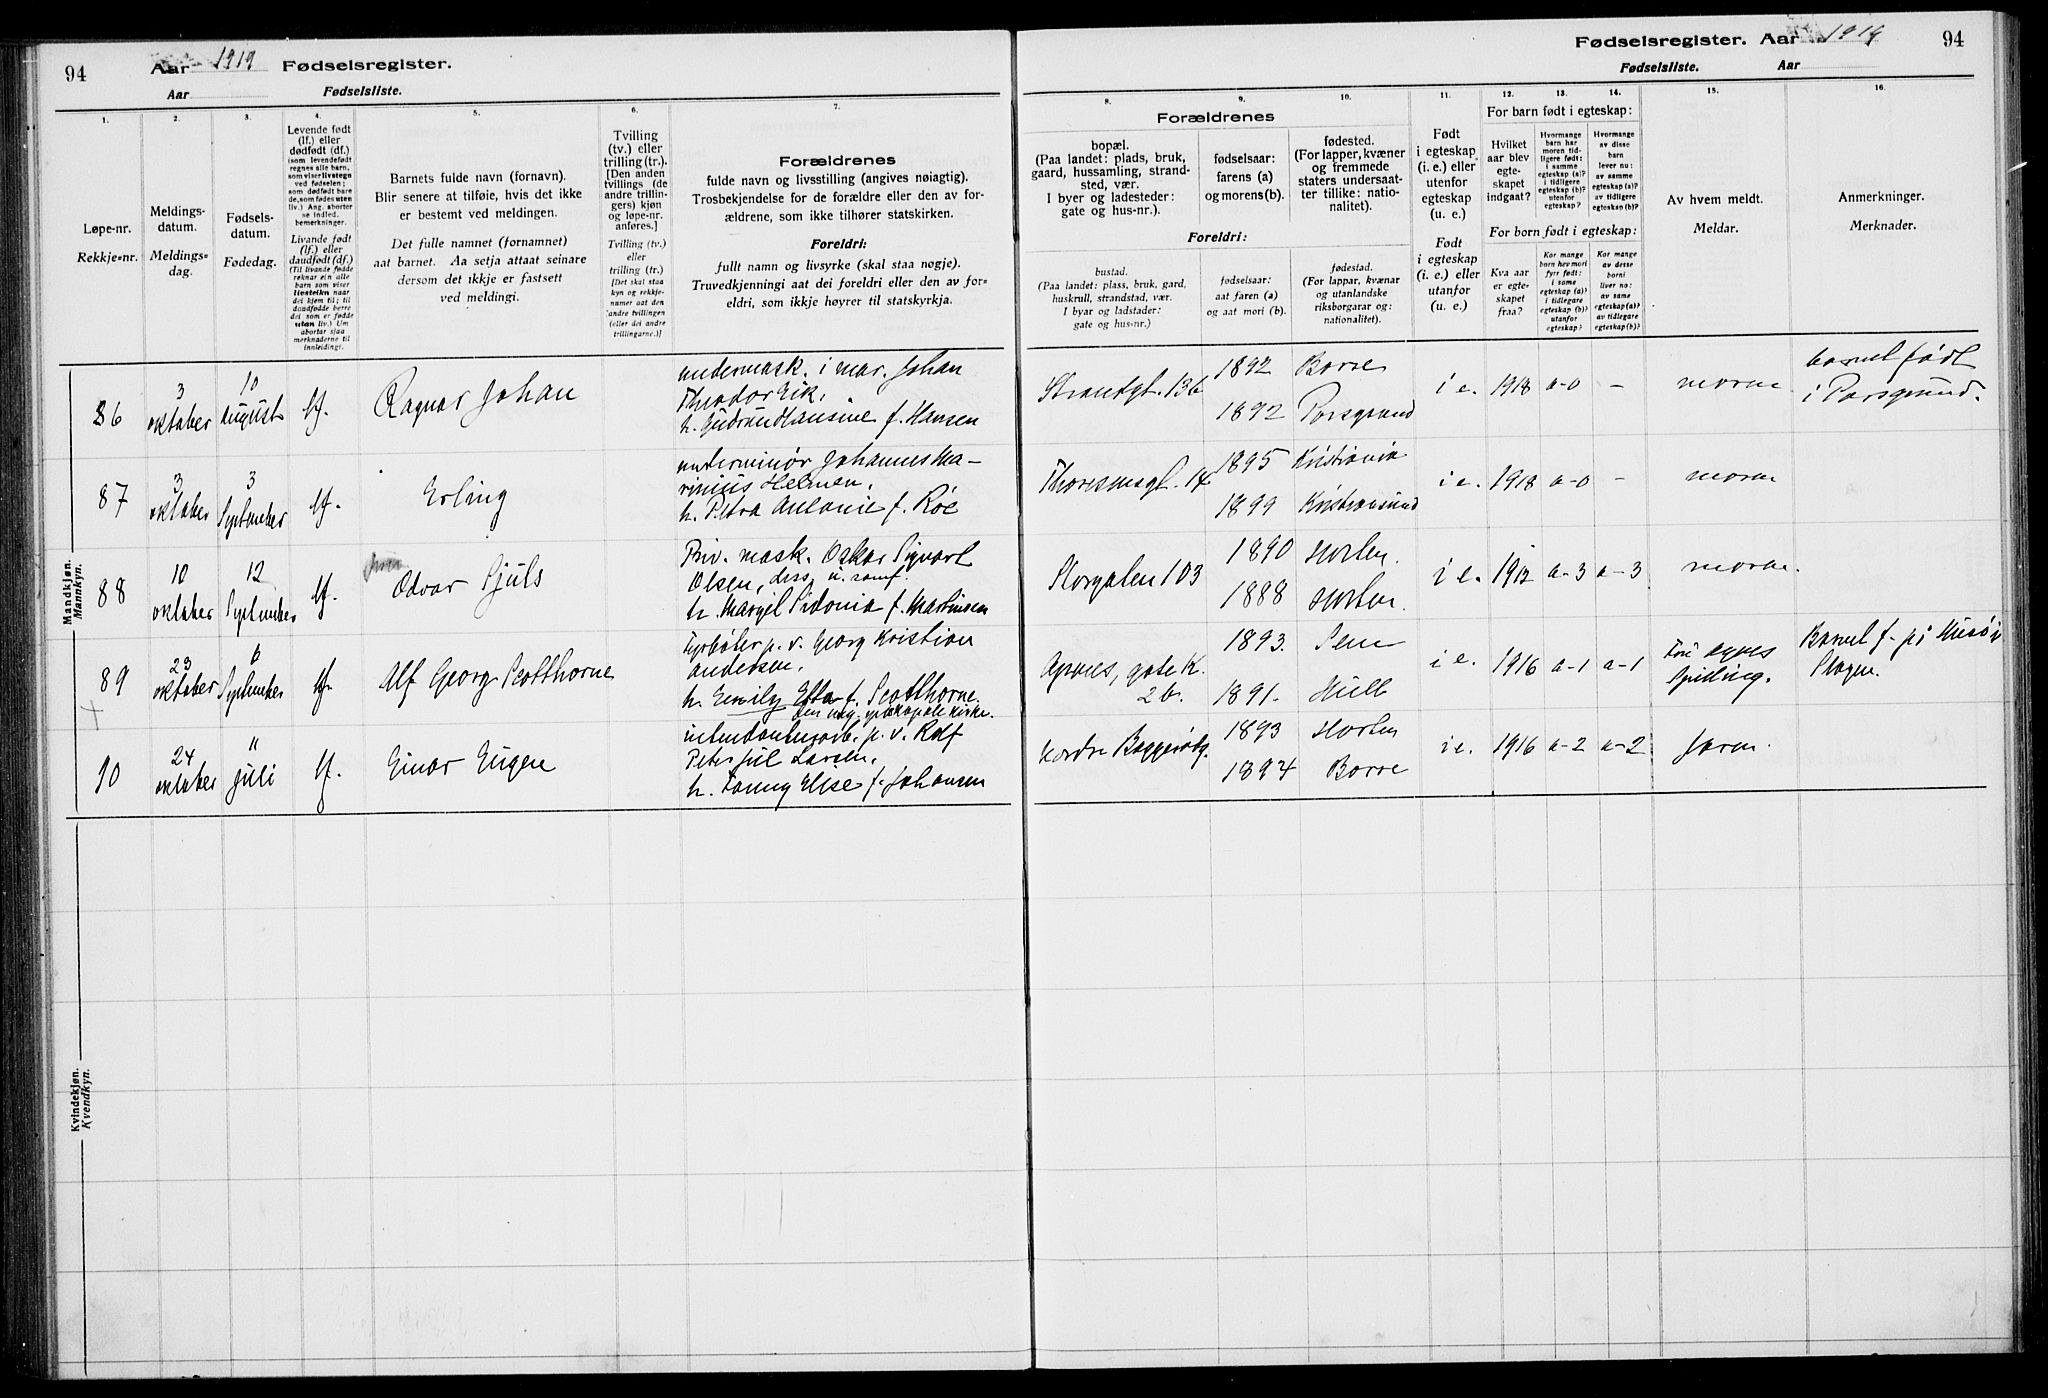 94
Aar 1919 Fødselsregister.
Aar Fødselsliste.
1.
2.
3.
4.
5.
6.
7.
Løpe-nr.
Rekkje=nr.
Meldings-
datum.
Meldings=
dag.
Fødsels-
datum.
Fødedag.
Levende født
(lf.) eller
dødfødt (df.)
(som levendefødt
regnes alle barn,
som viser livstegn
ved fødselen;
som dødfødt bare
de, som fødes uten
liv.) Ang. aborter
se indled.
bemerkninger.
Livande født
(lf.) eller
daudfødt (df.)
(Til livande fødde
reknar ein alle
barn som viser
livsteikn naar
dei kjem til; til
daudfødde berre
dei som er fødde
utan liv.) Um
abortar sjaa
merknaderne til
innleidingi.
Barnets fulde navn (fornavn).
Blir senere at tilføie, hvis det ikke
er bestemt ved meldingen.
Det fulle namnet (fornamnet)
aat barnet. Aa setja attaat seinare
dersom det ikkje er fastsett
ved meldingi.
Tvilling
(tv.) eller
trilling (tr.).
[Den anden
tvillings (de
andre trillin-
gers) kjøn
og løpe-nr.
anføres.]
Tvilling (tv.)
eller
trilling (tr.)
[Det skal staa
kyn og rekkje-
numer aat den
andre tvillingen
(eller dei andre
trillingarne.)]
Forældrenes
fulde navn og livsstilling (angives nøiagtig).
Trosbekjendelse for de forældre eller den av for-
ældrene, som ikke tilhører statskirken.
Foreldri:
fullt namn og livsyrke (skal staa nøgje).
Truvedkjenningi aat dei foreldri eller den av for=
eldri, som ikkje høyrer til statskyrkja.
Fødselsregister. Aar 1919
94
Fødselsliste. Aar
8.
9.
10.
11.
12.
13.
14.
15.
16.
Forældrenes
bopæl.
(Paa landet: plads, bruk,
gaard, hussamling, strand-
sted, vær.
I byer og ladesteder:
gate og hus-nr.).
fødselsaar:
farens (a)
og morens (b).
fødested.
(For lapper, kvæner
og fremmede
staters undersaat-
ter tillike: natio-
nalitet).
Foreldri:
bustad.
(Paa landet: plass, bruk, gard,
huskrull, strandstad, vær.
I byar og ladstader:
gate og hus-nr.)
fødselsaar:
aat faren (a)
og aat mori (b).
fødestad.
(For lappar, kvænar
og utanlandske
riksborgarar og=
nationalitet).
Født
i egteskap
(i. e.) eller
utenfor
egteskap
(u. e.)
Født
i egteskap
(i. e.) eller
utanfor
(u. e.)
For barn født i egteskap:
Hvilket
aar blev
egte-
skapet
indgaat?
Hvormange
barn har
moren tid-
ligere født:
i samme
egteskap (a)?
i tidligere
egteskap (b)?
utenfor
egteskap?
Hvormange
av disse
barn
lever nu:
av samme
egteskap (a)?
av tidligere
egteskap (b)?
For born født i egteskap:
Kva aar
er egte-
skapet
fraa?
Kor mange
born hev mori
fyrr født:
i same
egteskap (a)?
i tidlegare
egteskap (b)?
utanfor
egteskap?
Kor mange
av desse
borni
liver no:
av same
egteskap (a)?
av tidlegare
egteskap (b)?
Av hvem meldt.
Meldar.
Anmerkninger.
Merknader.
Mandkjøn.
Mannkyn.
86
3 oktober
10 August
lf.
Ragnar Johan
undermask. i mar. Johan
Theodor Eik,
h. Gudrun Hansine f. Hansen
Strandgt. 136
1892 Borre
1892 Porsgrund
i e. 1918 a-0 -
morne
barnet født
i Porsgrund.
87
3 oktober
3 September
lf.
Erling
underminør Johannes Ma-
rinius Helman,
h. Petra Antonie f. Röe
14
1895 Kristiania
1899 Kristiansund
i e. 1918 a-0 -
88
10 oktober
12 September
lf.
Odvar Sjuls
Priv. mask. Oskar Sigvart
Olsen, diss. u. samf.
h. Margit Sidonia f. Martinsen
Storgaten 103
1890 Horten.
1888 Horten.
i e. 1912 a-3 a-3
89
23 oktober
6 September
lf.
Alf Georg Scotthorne
Fyrbøter p. v. Georg Kristian
Andersen,
h. Emily Etta f. Scotthorne
den eng. episkopale kirke.
gate K.
2b.
1893. Sem
1891. Hull
i e. 1916 a-1 a-1
Barnet f. på Husøi
90
24 oktober
11 juli
lf.
Einar Eugen
intendanturarb. p. v. Rolf
Peter Juel Larsen,
h. Fanny Elise f. Johansen
Nordre Baggerødg.
1893 Horten
1894 Borre
i e. 1916 a-2 a-2
faren.
Kvindekjøn.
Kvendkyn.